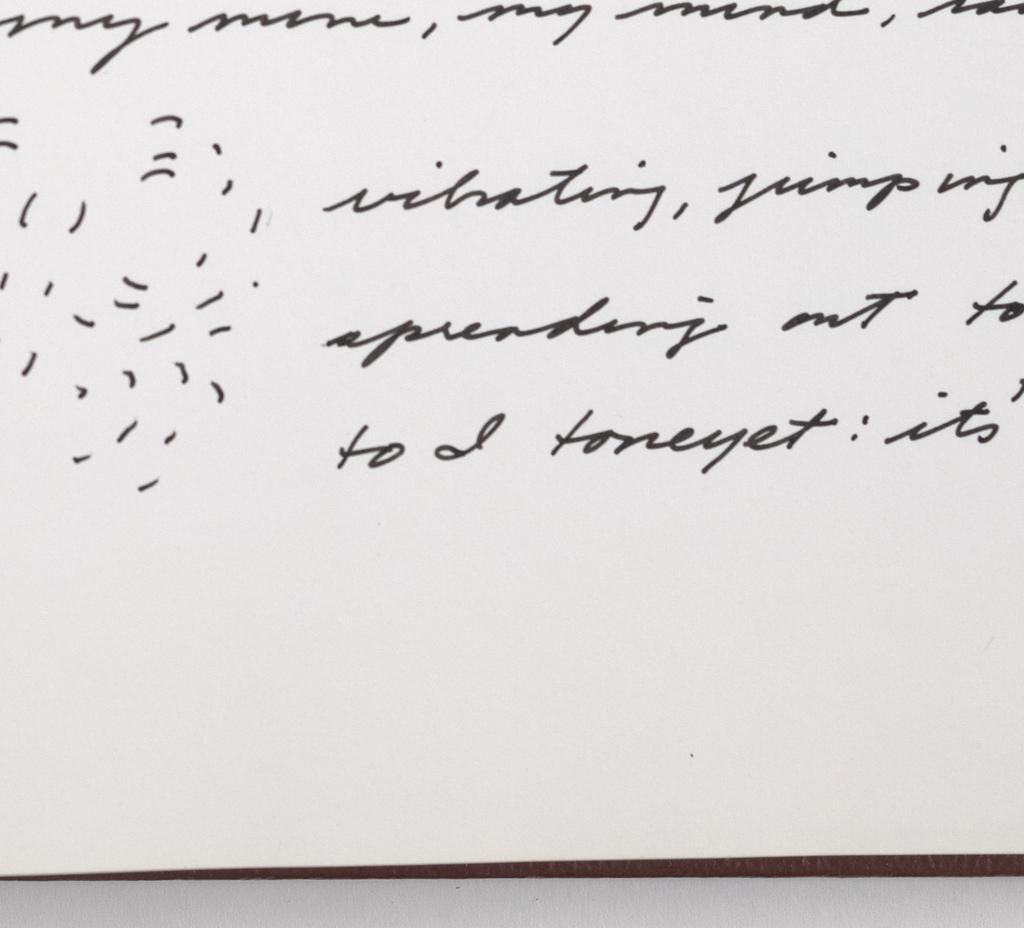 my mine, my mind,
vibrating, jumping
spreading out to
to I toneyet: it's